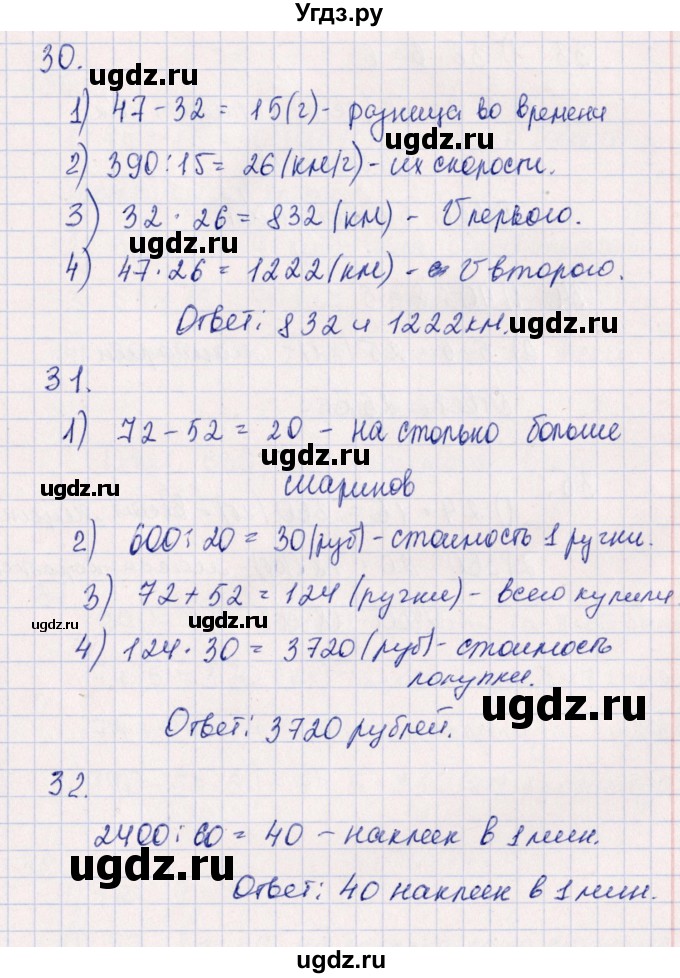 Угдз.ру
30.
ugdz.ru
1) 47 - 32 = 15 (г) - разница во времени
ugdz.ru
2) 390 : 15 = 26 (км/г) - их скорости.
ugdz.ru
3) 32 · 26 = 832 (км) - V первого.
ugdz.ru
4) 47 · 26 = 1222 (км) - V второго.
Ответ: 832 и 1222 км.
ugdz.ru
31.
1) 72 - 52 = 20 - на столько больше
ugdz.ru
шариков
ugdz.ru
2) 600 : 20 = 30 (руб) - стоимость 1 ручки.
ugdz.ru
3) 72 + 52 = 124 (ручки) - всего купили
ugdz.ru ugdz.ru
4) 124 · 30 = 3720 (руб) - стоимость
покупки.
ugdz.ru
Ответ: 3720 рублей.
32.
2400 : 60 = 40 - наклеек в 1 мин.
ugdz.ru
Ответ: 40 наклеек в 1 мин.
ugdz.ru
ugdz.ru